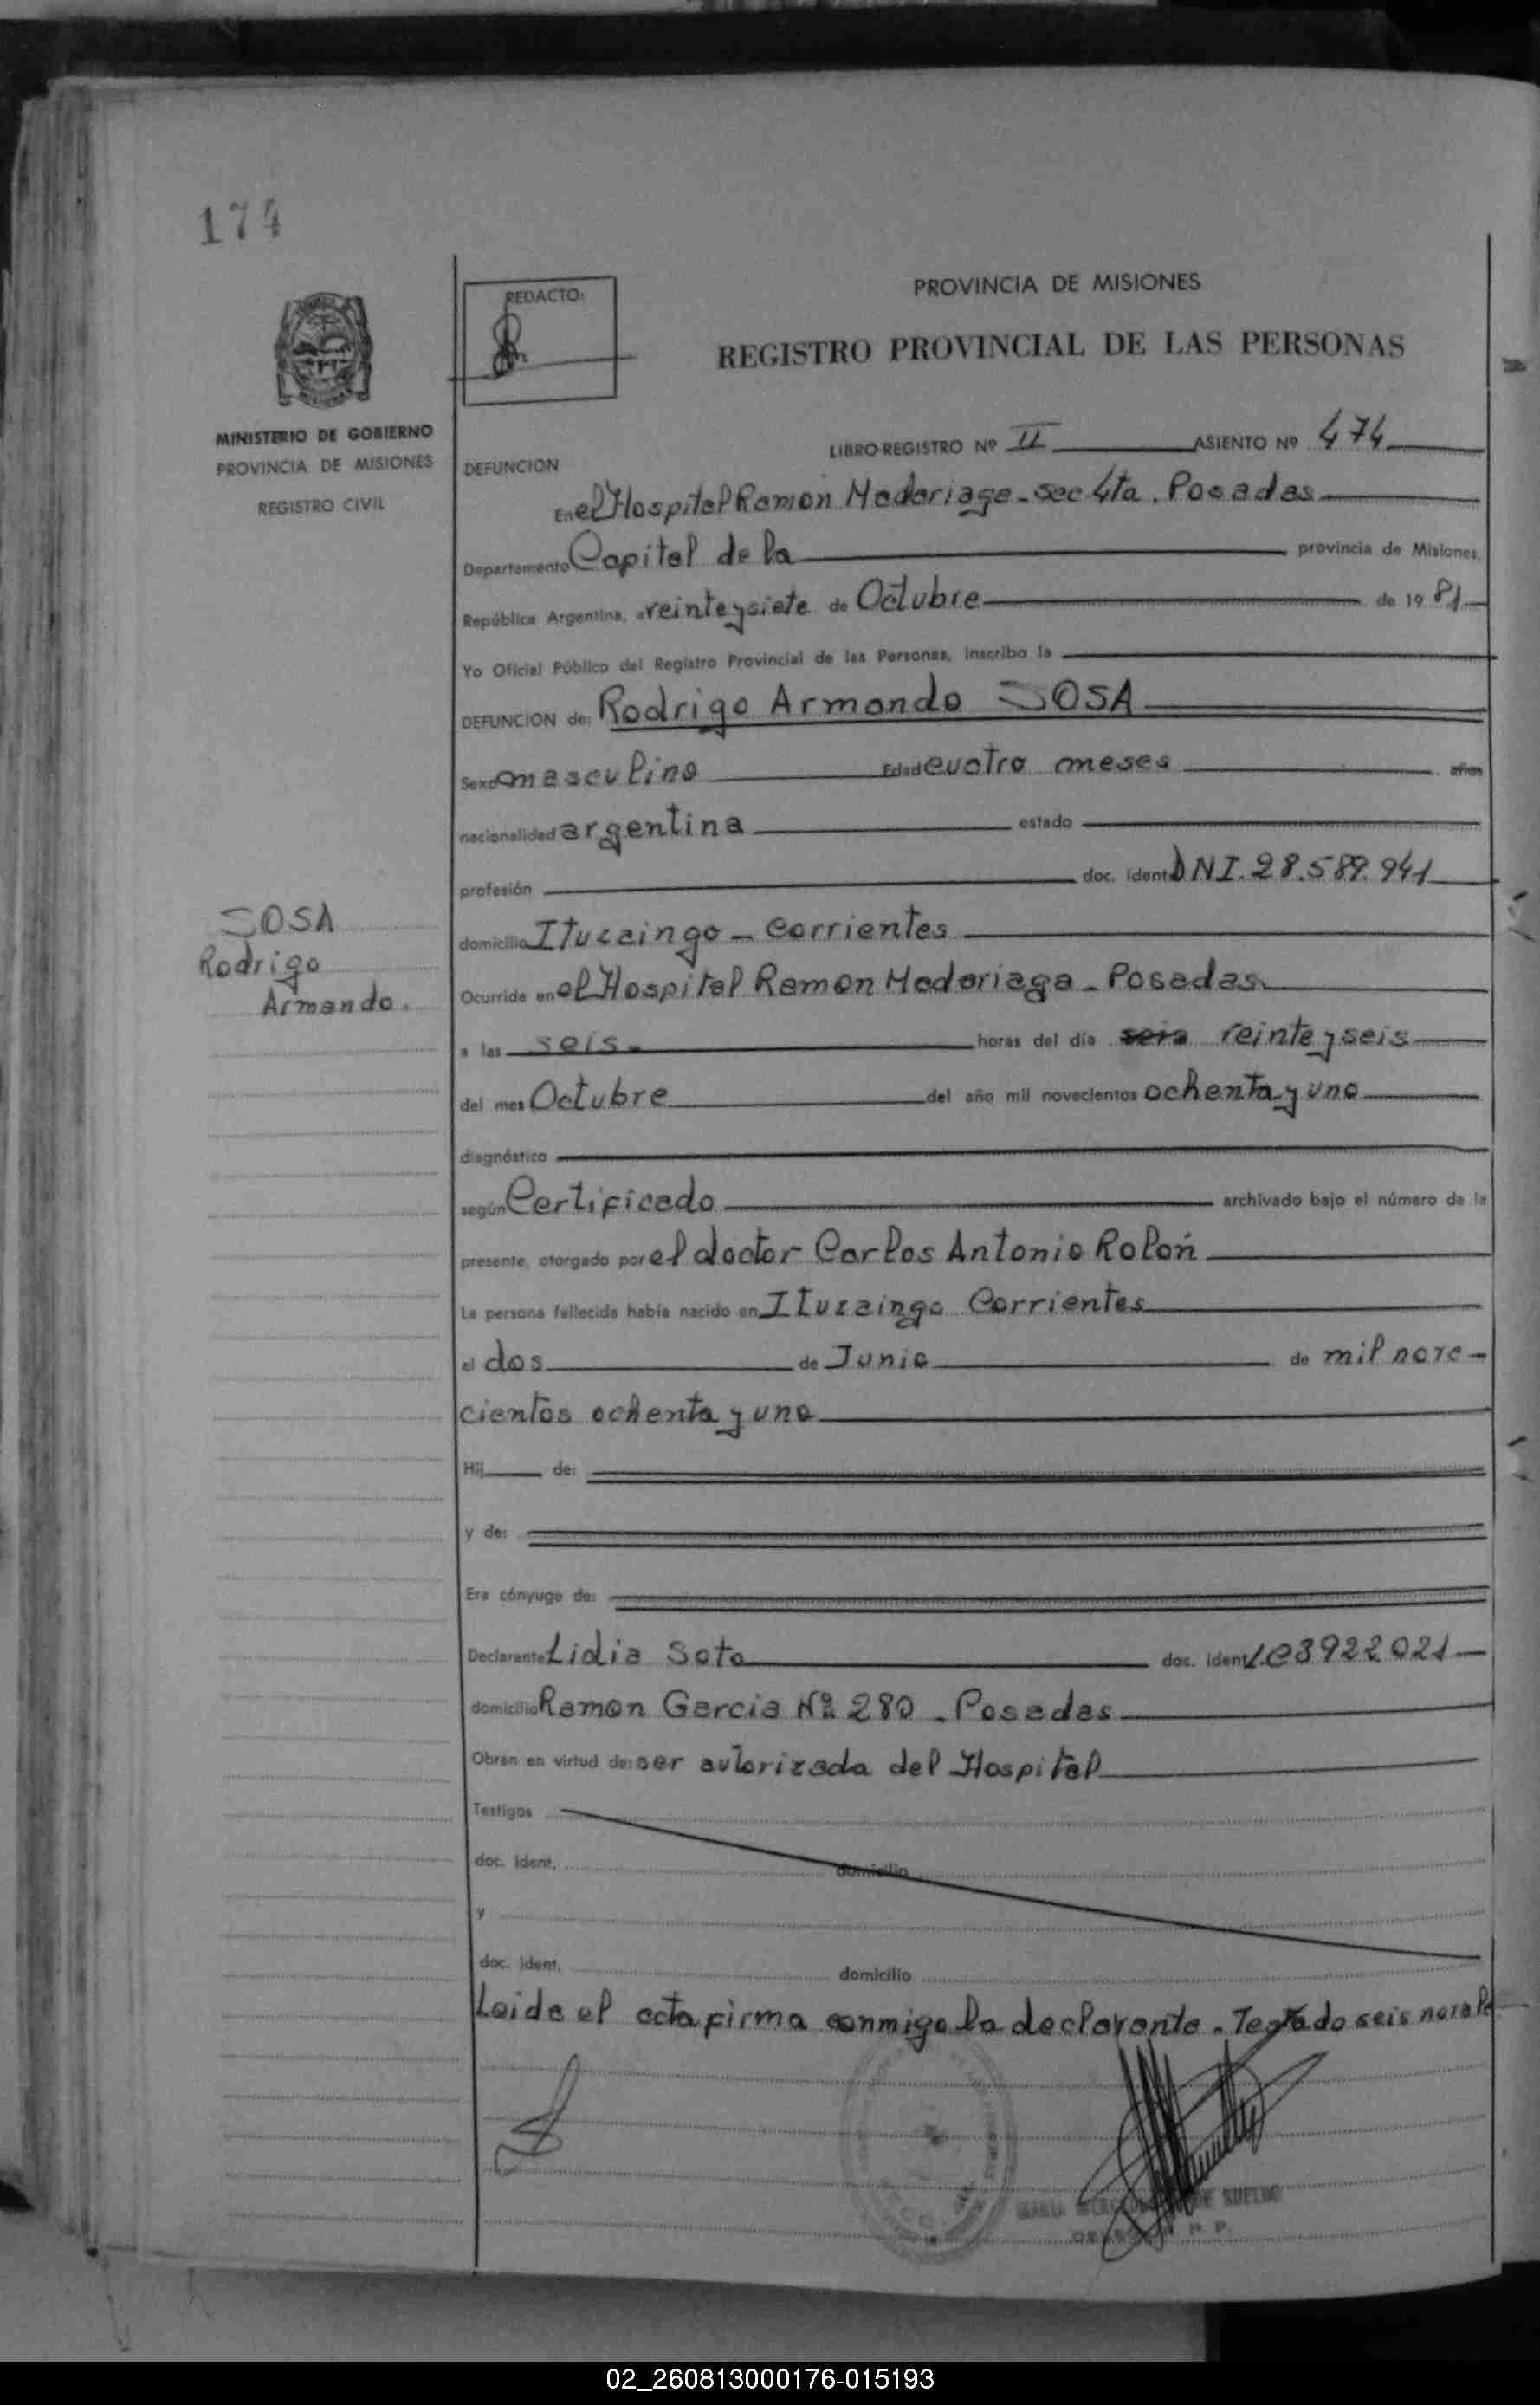 174
REDACTO:
PROVINCIA DE MISIONES
REGISTRO PROVINCIAL DE LAS PERSONAS
MINISTERIO DE GOBIERNO
PROVINCIA DE MISIONES
REGISTRO CIVIL
LIBRO-REGISTRO Nº II ASIENTO Nº 474
DEFUNCION
En el Hospital Ramon Madariaga - sec 4ta. Posadas
Departamento Capital de la provincia de Misiones,
República Argentina, a veinteysiete de Octubre de 1981
Yo Oficial Público del Registro Provincial de las Personas, inscribo la
DEFUNCION de: Rodrigo Armando SOSA
Sexo masculino Edad cuatro meses años
nacionalidad argentina estado
profesión doc. ident. DNI. 28.589.941
SOSA
Rodrigo
Armando.
domicilio Ituzaingo - Corrientes
Ocurrida en el Hospital Ramon Madariaga - Posadas
a las seis horas del día seis veinteyseis
del mes Octubre del año mil novecientos ochenta y uno
diagnóstico
según Certificado archivado bajo el número de la
presente, otorgado por el doctor Carlos Antonio Rolón
La persona fallecida había nacido en Ituzaingo Corrientes
el dos de Junio de mil nove-
cientos ochenta y uno
Hij de:
y de:
Era cónyuge de:
Declarante Lidia Soto doc. ident. LC 3922021
domicilio Ramon Garcia Nº 280 - Posadas
Obran en virtud de: ser autorizada del Hospital
Testigos
doc. ident. domicilio
y
doc. ident. domicilio
Leida el acta firma conmigo la declarante. Testado seis no vale
MARIA DE SUELDO
02_260813000176-015193